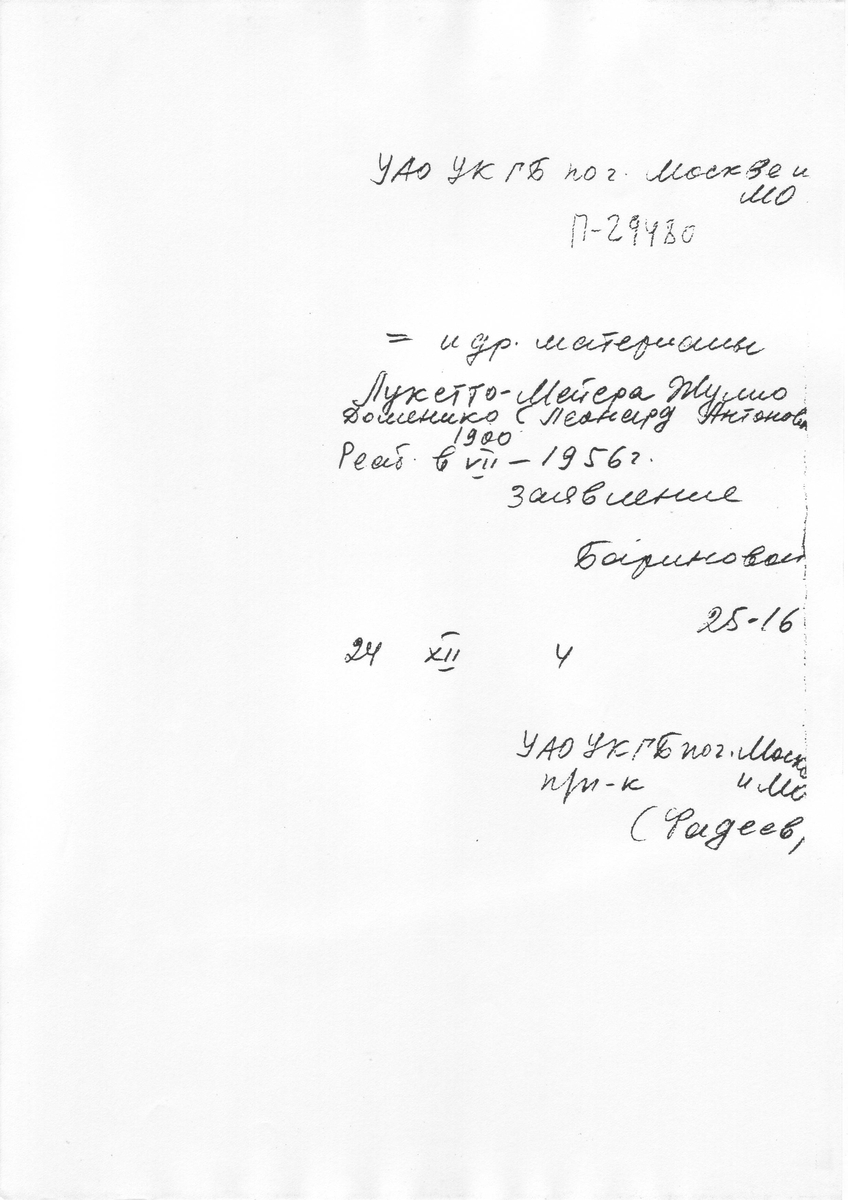 УАО УКГБ по г. Москве и
МО
П-29480
= и др. материалы
Лукетто-Мейера Жулио
Доменико (Леонард Антонов
1900
Реаб. в VII – 1956 г.
Заявление
Бариновой
25-16
24 XII 4
УАО УКГБ по г. Моск
пр-к и МО
(Фадеев,